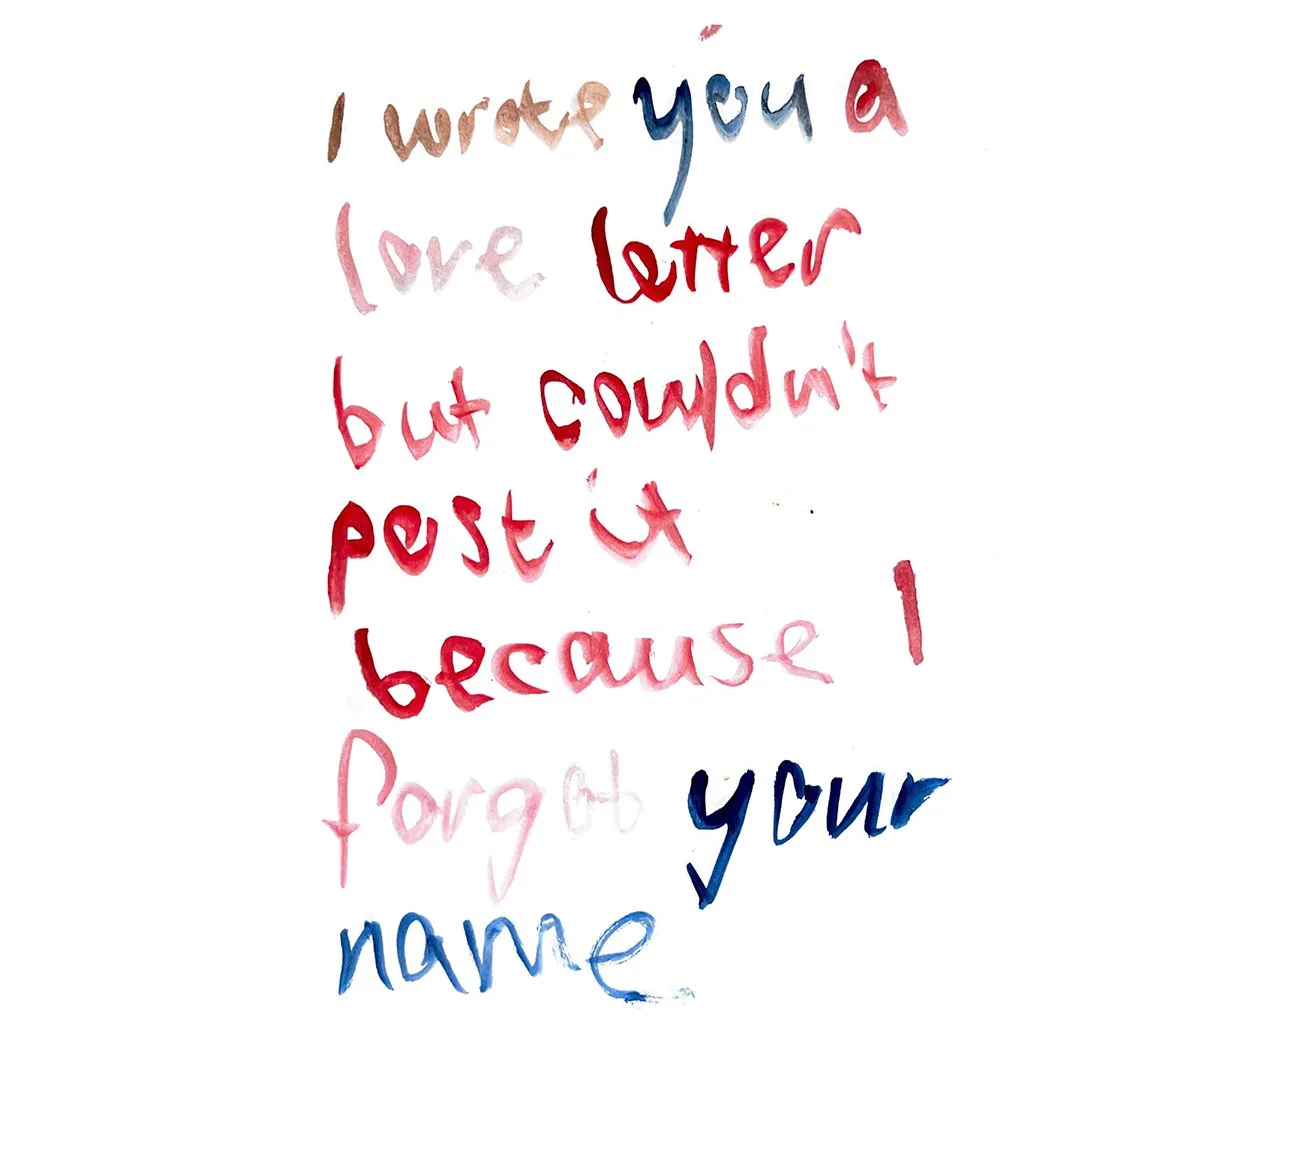 I wrote you a
love letter
but couldn't
post it
because I
forgot your
name